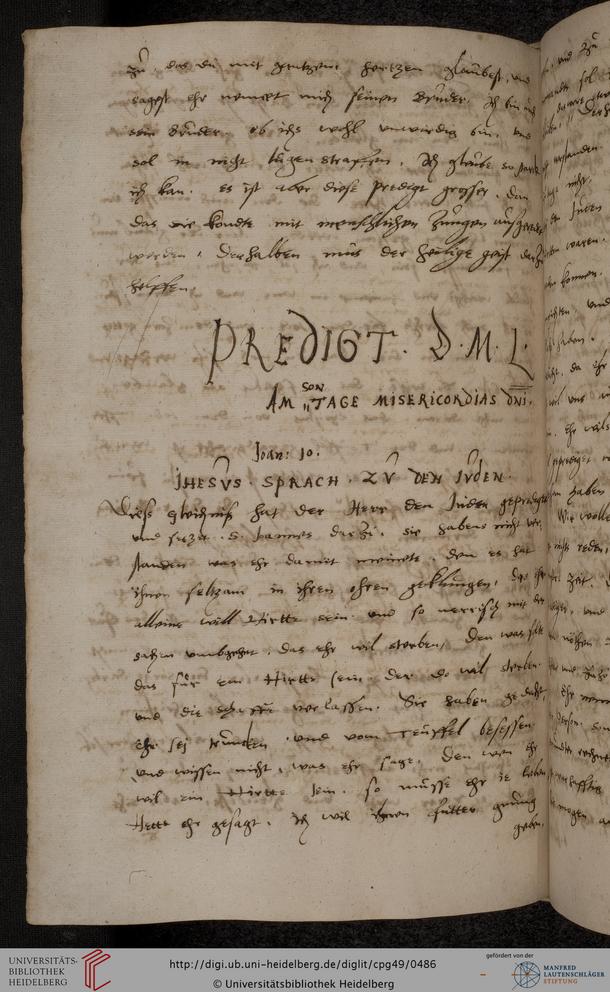 zu, das du mit gantzem hertzen glaubest, und
sagest ehr nennet mich seinen Bruder. Ich bin auch
sein Bruder. ob ichs wohl unwirdig bin. und
sol in nicht lügen straffen. Ich glaube so starck
ich kan. es ist aber diese predigt grosser, dan
das sie kondte mit menschlichen Zungen ausgeredt
werden, derhalben mus der heilige geist darzu
helffen.
PREDIGT. D. M. L.
AM SONTAGE MISERICORDIAS DNI.
Joan: 10.
IHESUS SPRACH ZU DEN JUDEN.
Diess gleichniss hat der Herr den Juden geprediget
und sagt S. Joannes darzu, sie habens nicht ver
standen was ehr damit meinete, den es hat
ihnen seltzam in ihren ohren geklungen, das ehr
alleine will Hirtte sein und so nerrisch mit den
sachen umbgehet, das ehr wil sterben, Den was solte
das für ein Hirtte sein der do wil sterben
und die schaffe verlassen. Sie haben gedacht,
ehr sej truncken und vom Teuffel besessen
und wissen nicht, was ehr sage. Den wen ehr
wil ein Hirtte sein. so müsse ehr je leben
Hette ehr gesagt. Ich wil ihnen futter gnung
geben.
UNIVERSITÄTS-
BIBLIOTHEK
HEIDELBERG
http://digi.ub.uni-heidelberg.de/diglit/cpg49/0486
© Universitätsbibliothek Heidelberg
gefördert von der
MANFRED
LAUTENSCHLÄGER
STIFTUNG